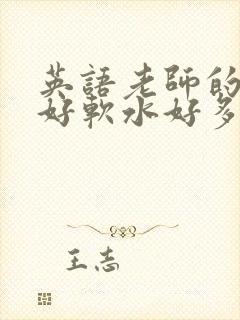 英語老師的
好軟水好多
王志